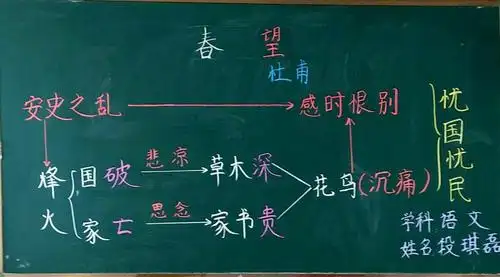 春 望
杜甫
安史之乱 感时恨别
烽火
国破 悲凉 草木深
家亡 思念 家书贵
花鸟(沉痛)
忧国忧民
学科 语文
姓名 段琪磊